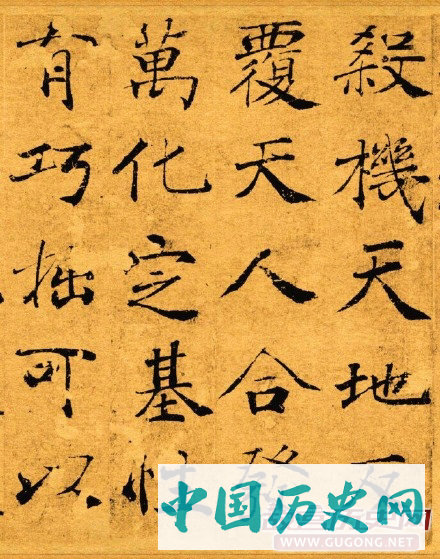 殺機天地
覆天人合
萬化定基
有巧拙可以
中国历史网
WWW.GUGONG.NET